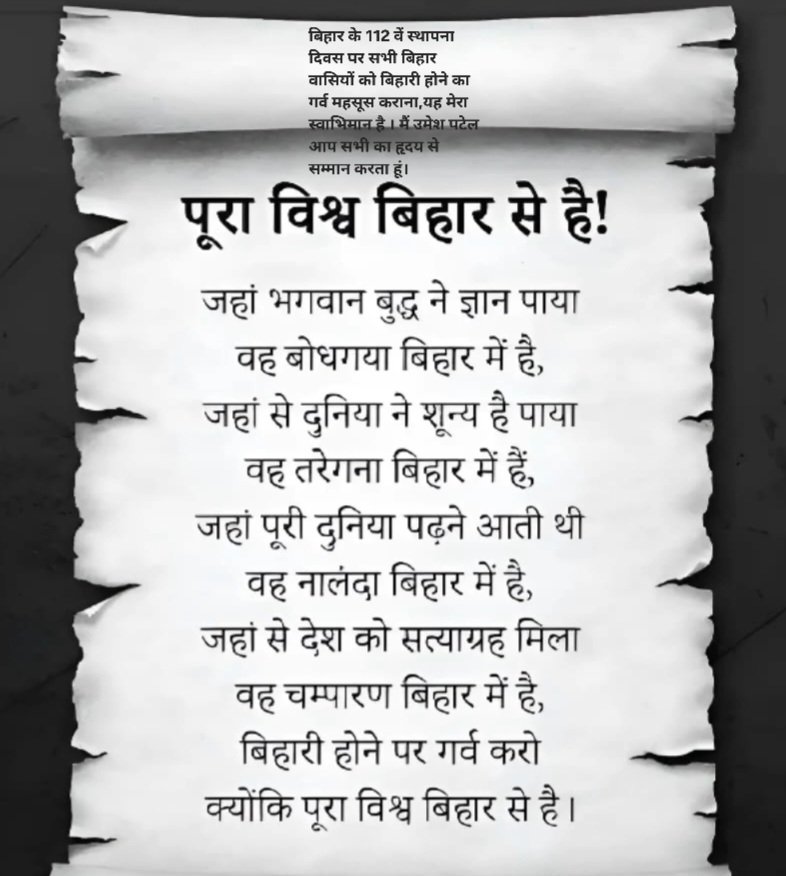 बिहार के 112 वें स्थापना
दिवस पर सभी बिहार
वासियों को बिहारी होने का
गर्व महसूस कराना,यह मेरा
स्वाभिमान है । मैं उमेश पटेल
आप सभी का हृदय से
सम्मान करता हूं।
पूरा विश्व बिहार से है!
जहां भगवान बुद्ध ने ज्ञान पाया
वह बोधगया बिहार में है,
जहां से दुनिया ने शून्य है पाया
वह तरेगना बिहार में हैं,
जहां पूरी दुनिया पढ़ने आती थी
वह नालंदा बिहार में है,
जहां से देश को सत्याग्रह मिला
वह चम्पारण बिहार में है,
बिहारी होने पर गर्व करो
क्योंकि पूरा विश्व बिहार से है।